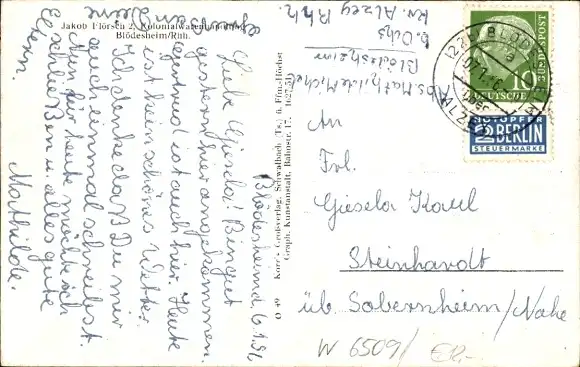 Jakob Florsch 2, Kolonialwarenhandlung
Blödesheim/Rhh.
Blödesheim d. 6.1.56.
Liebe Gisela! Bin gut
gestern hier angekommen.
ist auch hier. Heute
ist kein schönes Wetter.
Ich denke daß Du mir
auch einmal schreibst.
Nun für heute möchte ich
schließen u. alles gute
Mathilde
Korr's Großverlag, Schwalbach (Ts.) u. Ffm.-Höchst
Graph. Kunstanstalt, Bahnstr. 17. 1627/51
O 49
Abs. Mathilde Michel
Blödesheim
b. Ochs
Kr. Alzey Rhh.
DEUTSCHE
BUNDESPOST
10
ALZEY
über
NOTOPFER
2 BERLIN
STEUERMARKE
An
Frl.
Gisela Kaul
Steinhardt
üb. Sobernheim/Nahe
W 6509/